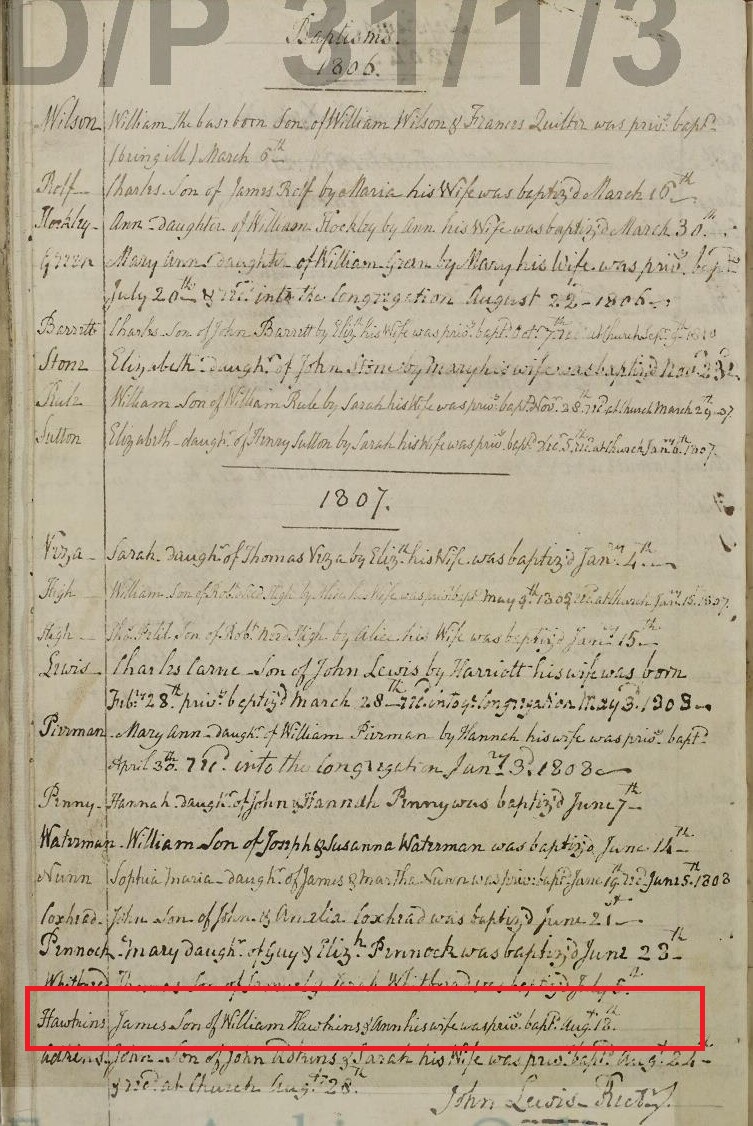 D/P 31/1/3
Baptisms.
1806.
Wilson William the base born Son of William Wilson & Frances Quilter was priv. bapt.
(being ill) March 6th
Rolf Charles Son of James Rolf by Maria his Wife was baptiz'd March 16th
Hockley Ann daughter of William Hockley by Ann his Wife was baptiz'd March 30th
Green Mary Ann daughter of William Green by Mary his Wife was priv. bapt.
July 20th & rec'd into the Congregation August 22d 1806
Barrett Charles Son of John Barrett by Eliz. his Wife was priv. bapt. Oct. 7th rec'd at Church Sept. 9th
Stone Elizabeth Daugh.r of John Stone by Mary his wife was baptiz'd Nov.r 23d
Rule William Son of William Rule by Sarah his Wife was priv. bapt. Nov. 28th rec'd at Church March 29 07
Sutton Elizabeth daugh.r of Henry Sutton by Sarah his Wife was priv. bapt. Dec. 5th rec. at Church Jan.y 6th 1807.
1807.
Viza Sarah daugh.r of Thomas Viza by Eliz.th his Wife was baptiz'd Jan.ry 4th
High William Son of Rob. High by his Wife was priv. bapt. May 9th 1805 rec'd at Church Jan.ry 15th 1807.
High Son of Rob.t High by Alice his Wife was baptiz'd Jan.ry 15th
Lewis Charles Carne Son of John Lewis by Harriott his wife was born
Feb.y 28th priv. baptiz'd March 28th rec'd into ye Congregation May 3d 1808
Pierman Mary Ann daugh.r of William Pierman by Hannah his wife was priv. bapt.
April 30. rec'd into the Congregation Jan.ry 3d 1808
Penny Hannah daugh.r of John & Hannah Penny was baptiz'd June 7th
Waterman William Son of Joseph & Susanna Waterman was baptiz'd June 14th
Nunn Sophia Maria daugh.r of James & Martha Nunn was priv. bapt. June 19 rec'd June 5th 1808
Coxhead John Son of John & Amelia Coxhead was baptiz'd June 21st
Pennock Mary daugh.r of Guy & Eliz.h Pennock was baptiz'd June 23th
Whitbred Thomas Son of by Sarah Whitbread was baptiz'd July 5th
Hawkins James Son of William Hawkins & Ann his wife was priv. bapt. Aug.t 18th
Adkins John Son of John Adkins & Sarah his Wife was priv. bapt. Aug.t 24th
& rec'd at Church Aug.st 28th
John Lewis Rect.r